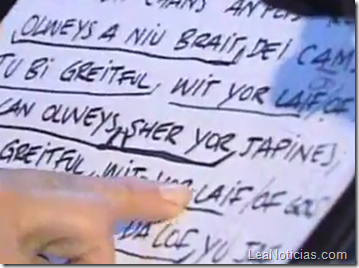 CHANS ANTEIS
OLWEYS A NIU BRAIT, DEI CAME
TU BI GREITFUL, WIT YOR LAIF, OF
CAN OLWEYS, SHER YOR, JAPINES,
GREITFUL, WIT YOR LAIF, OF GOD
DA LOF, YU
LeaNoticias.com